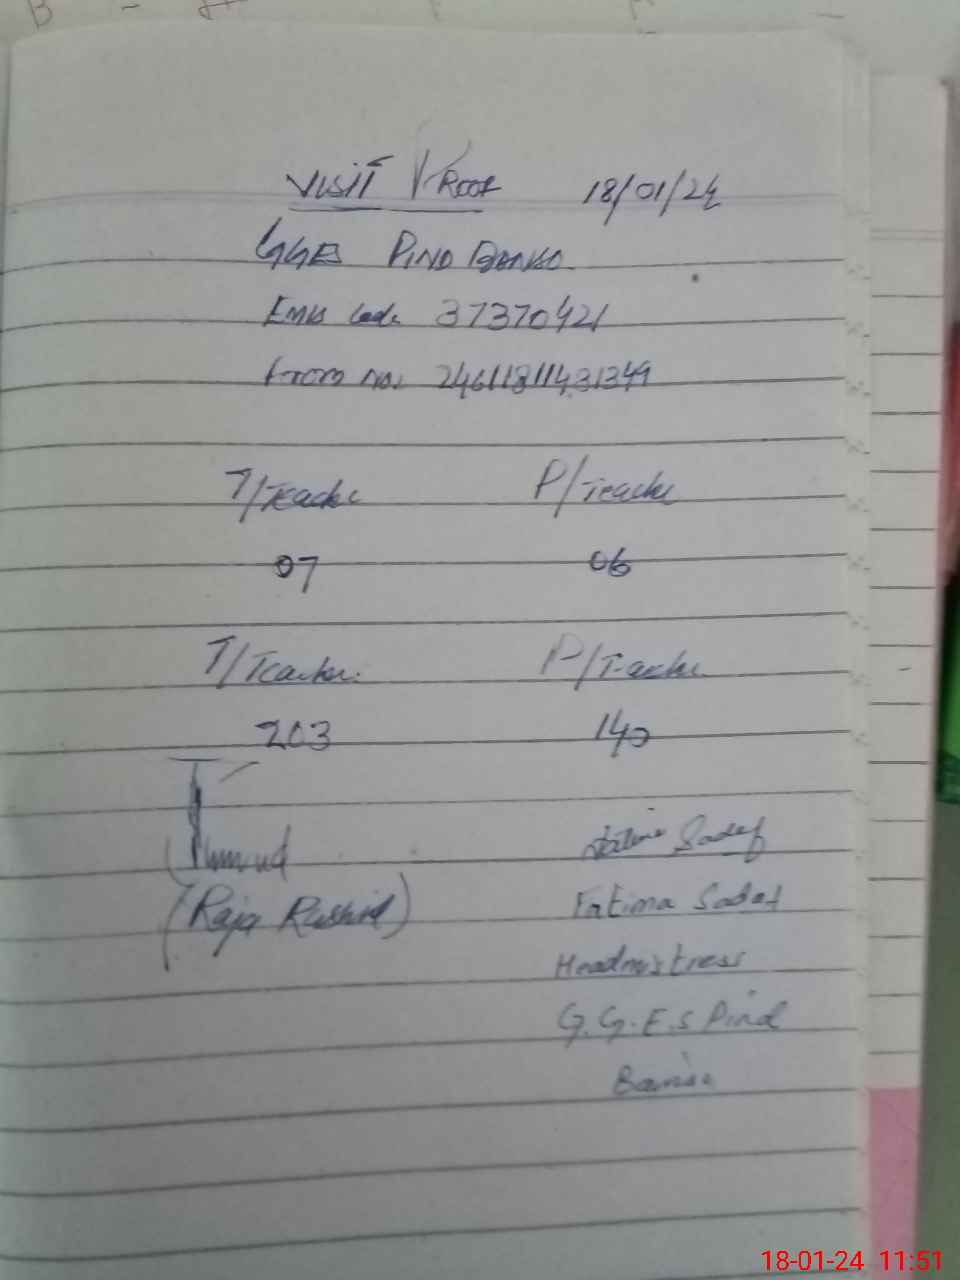 VISIT PROOF 18/01/24
GGES PIND BANSO
Emis Code 37370421
From No. 24611811431349
T/Teacher P/Teacher
07 06
T/Teacher P/Teacher
203 140
(Raja Rashid)
Fatima Sadaf
Fatima Sadaf
Headmistress
G.G.E.S Pind
18-01-24 11:51